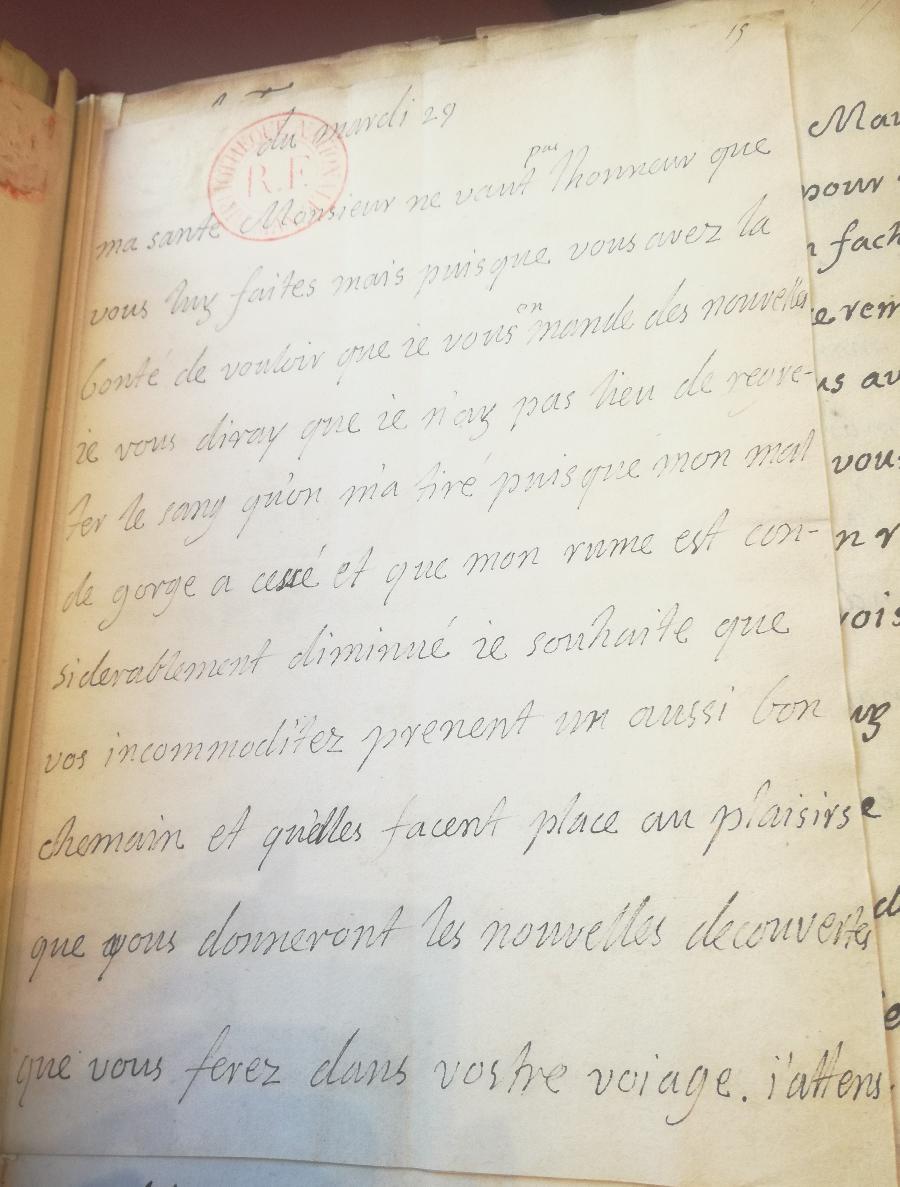 15
du mardi 29
R.F.
pas
ma santé Monsieur ne vaut lhonneur que
vous luy faites mais puisque vous avez la
en
bonté de vouloir que ie vous mande des nouvelles
ie vous diray que ie n'ay pas lieu de regre-
ter le sang qu'on m'a tiré puisque mon mal
de gorge a cessé et que mon rume est con-
siderablement diminué ie souhaite que
vos incommoditez prenent un aussi bon
chemain et qu'elles facent place au plaisirs
que vous donneront les nouvelles decouvertes
que vous ferez dans vostre voiage. i'attens